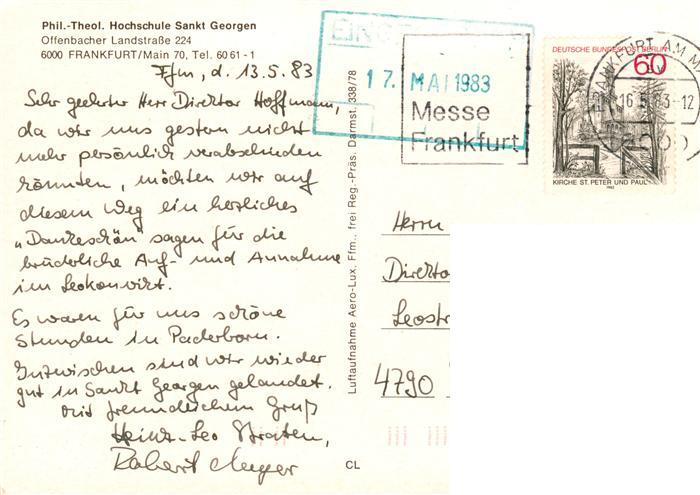 Phil.-Theol. Hochschule Sankt Georgen
Offenbacher Landstraße 224
6000 FRANKFURT/Main 70, Tel. 60 61 - 1
Ffm, d. 13.5.83
Sehr geehrter Herr Direktor Hoffmann,
da wir uns gestern nicht
mehr persönlich verabschieden
konnten, möchten wir auf
diesem Weg ein herzliches
„Dankeschön" sagen für die
brüderliche Auf- und Annahme
im Leokonvikt.
Es waren für uns schöne
Stunden in Paderborn.
Inzwischen sind wir wieder
gut in Sankt Georgen gelandet.
Mit freundlichem Gruß
Heinz-Leo
Robert
CL
Luftaufnahme Aero-Lux, Ffm., frei Reg.-Präs. Darmst. 338/78
17. MAI 1983
Messe
Frankfurt
DEUTSCHE BUNDESPOST BERLIN
60
KIRCHE ST. PETER UND PAUL
1982
FRANKFURT AM M
16.5.83-12
Herrn
Direkto
Leostr
4790